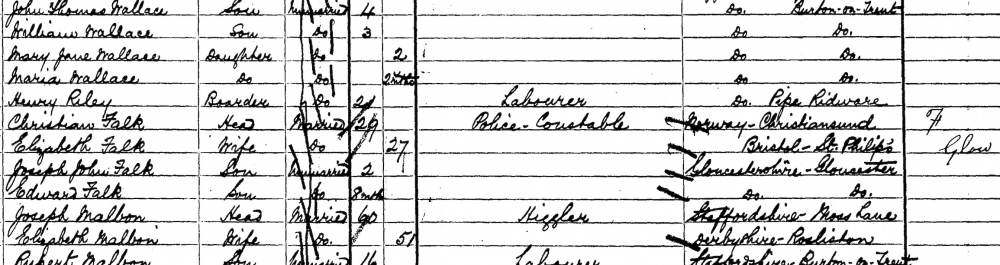 John Thomas Wallace Son Unmarried 4 Do. Burton-on-Trent
William Wallace Son Do 3 Do Do.
Mary Jane Wallace Daughter Do 2 Do Do.
Maria Wallace Do Do Do Do.
Henry Riley Boarder Do 21 Labourer Do. Pipe Ridware
Christian Falk Head Married 29 Police-Constable Norway-Christiansund F
Elizabeth Falk Wife Do 27 Bristol-St. Philip's Glou
Joseph John Falk Son Unmarried 2 Gloucestershire-Gloucester
Edward Falk Son Do 8 mths Do. Do.
Joseph Malbon Head Married 60 Higgler Staffordshire-Moss Lane
Elizabeth Malbon Wife Do. 51 Derbyshire-Rosliston
Rupert Malbon Son Unmarried 16 Labourer Staffordshire-Burton-on-Trent